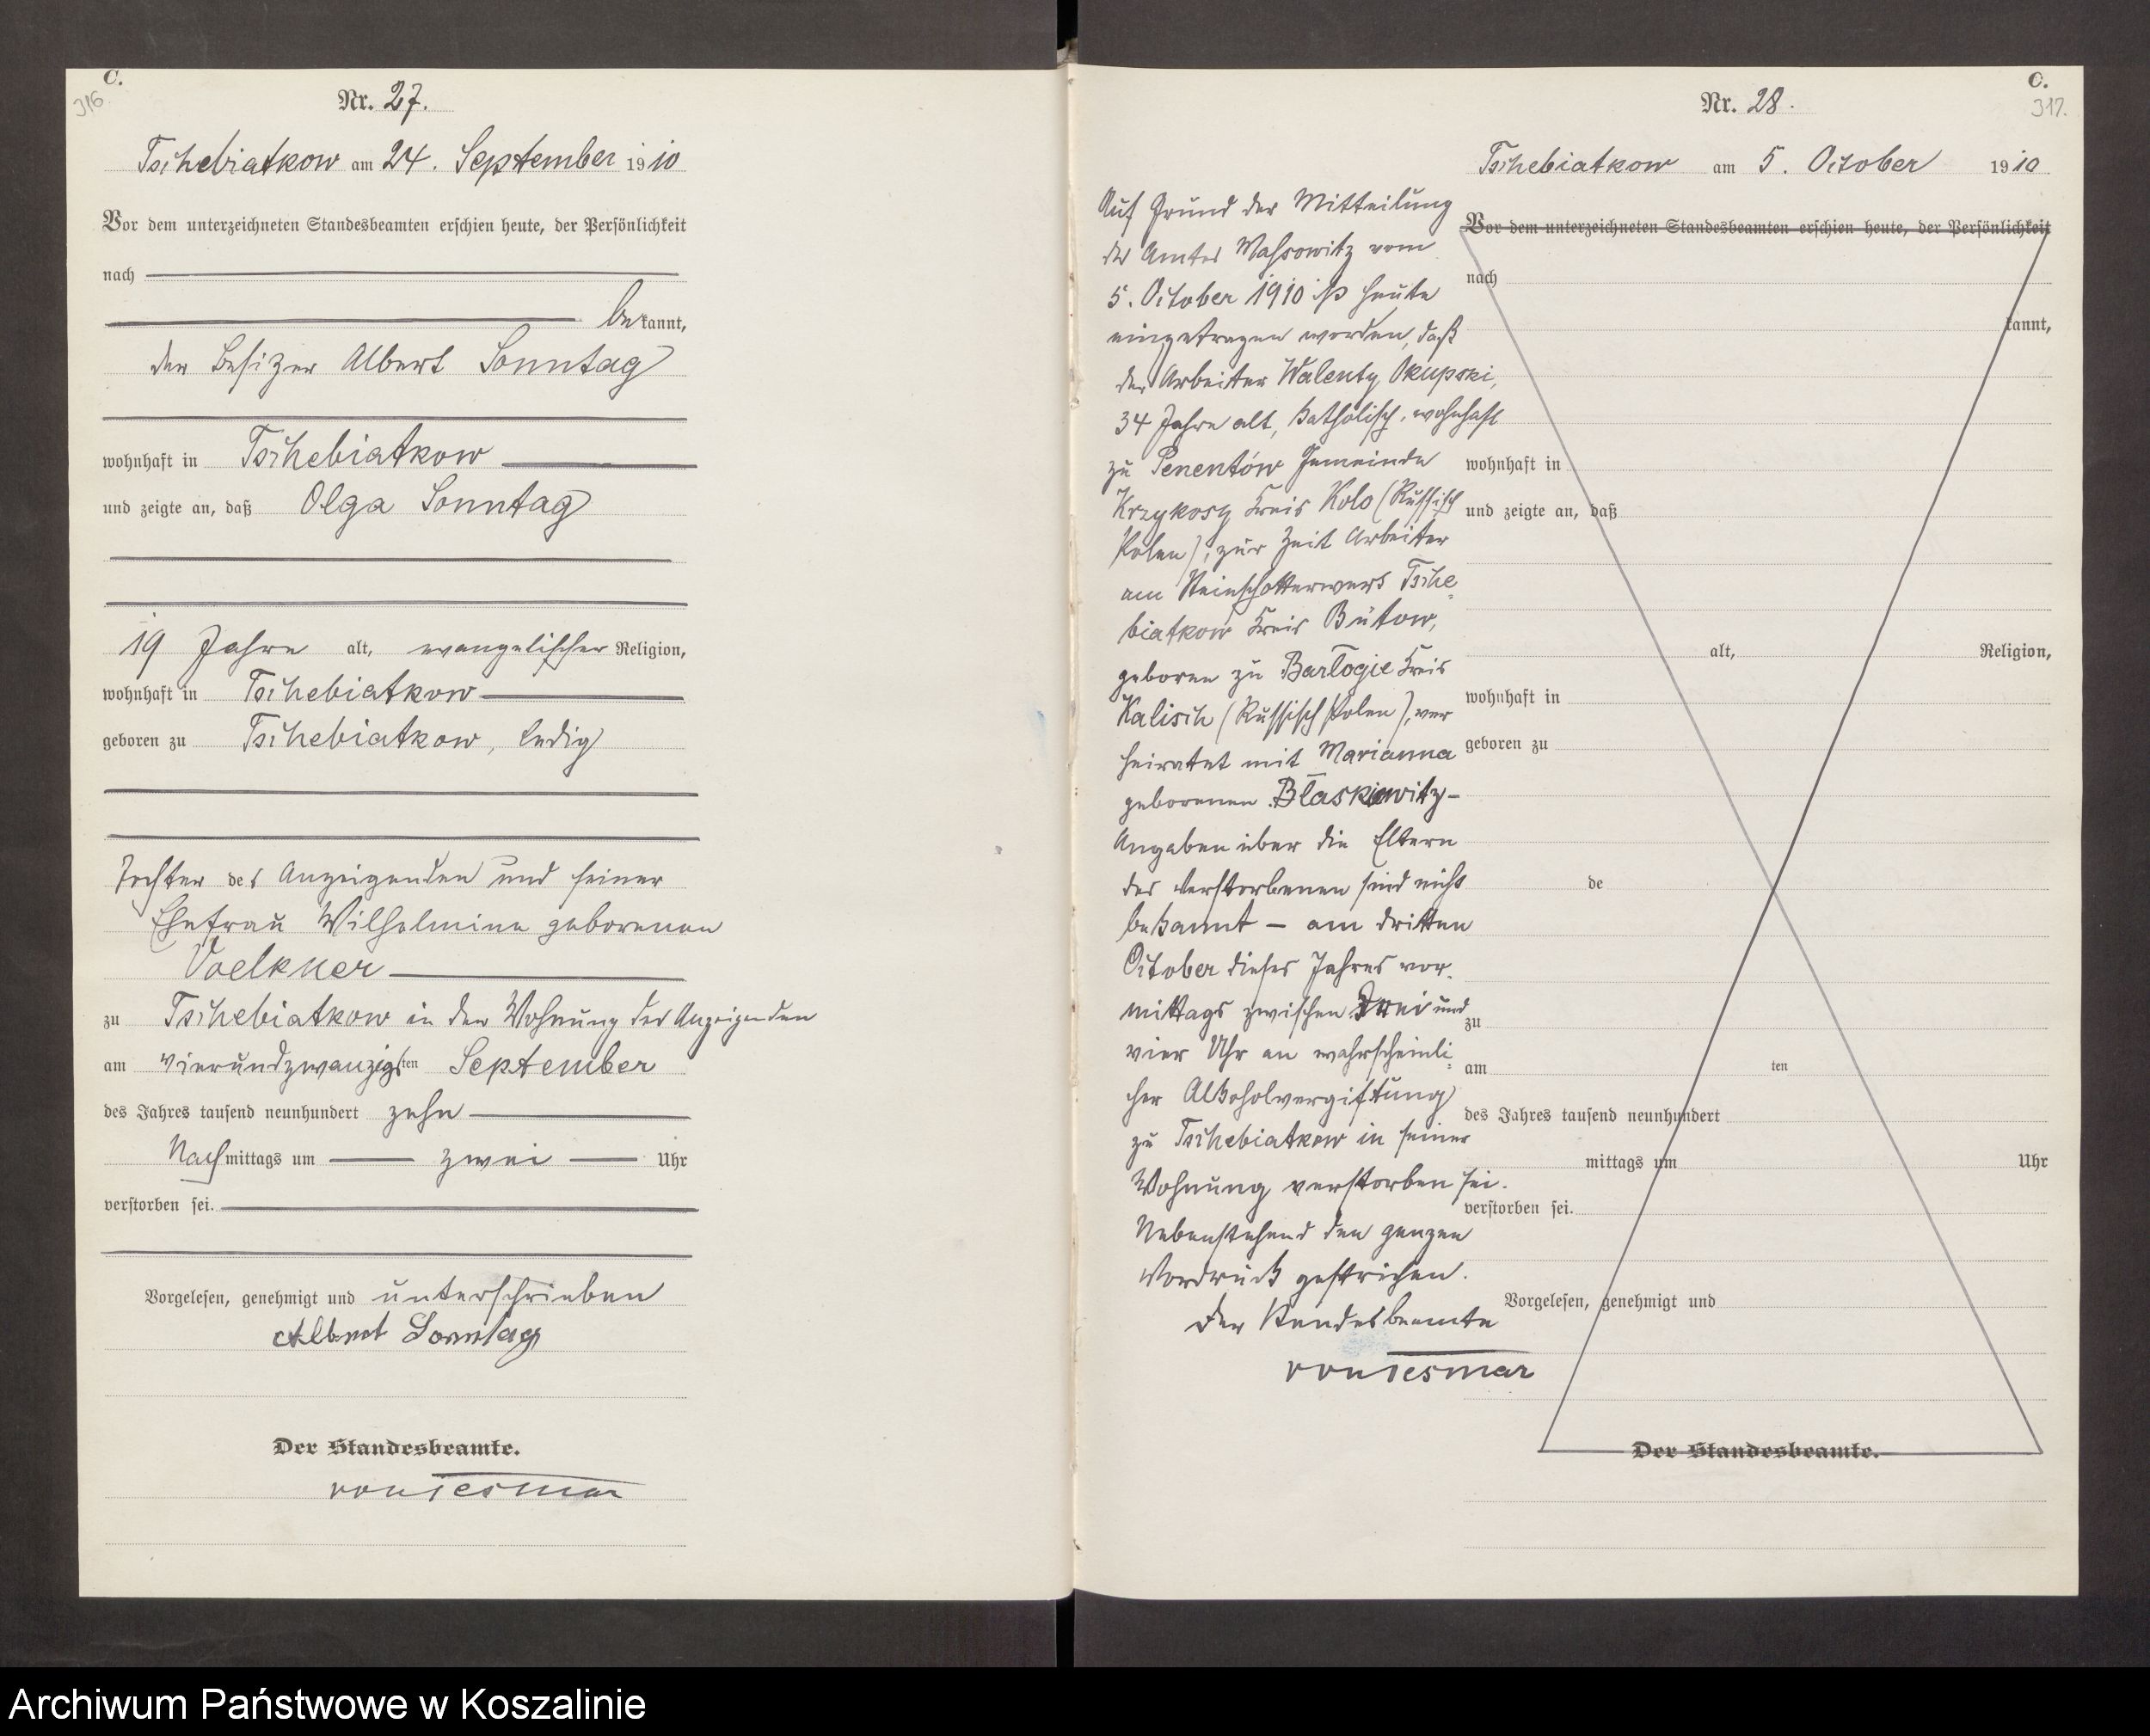 C.
316
Nr. 27.
Tschebiatkow am 24. September 1910
Vor dem unterzeichneten Standesbeamten erschien heute, der Persönlichkeit
nach
bekannt,
der Besizer Albert Sonntag
wohnhaft in Tschebiatkow
und zeigte an, daß Olga Sonntag
19 Jahre alt, evangelischer Religion,
wohnhaft in Tschebiatkow
geboren zu Tschebiatkow, ledig
Tochter des Anzeigenden und seiner
Ehefrau Wilhelmine geborenen
Voelkner
zu Tschebiatkow in der Wohnung des Anzeigenden
am vierundzwanzigsten September
des Jahres tausend neunhundert zehn
Nachmittags um zwei Uhr
verstorben sei.
Vorgelesen, genehmigt und unterschrieben
Albert Sonntag
Der Standesbeamte.
von Tesmar
C.
317.
Nr. 28.
Tschebiatkow am 5. October 1910
Auf Grund der Mitteilung
des Amtes Massowitz vom
5. October 1910 ist heute
eingetragen worden, daß
der Arbeiter Walenty Okupski,
34 Jahre alt, katholisch, wohnhaft
zu Penentów Gemeinde
Krzykosy Kreis Kolo (Russisch
Polen), zur Zeit Arbeiter
am Steinschotterwerk Tsche
biatkow Kreis Bütow,
geboren zu Barłogie Kreis
Kalisch (Russisch Polen), ver
heiratet mit Marianna
geborenen Błaskiewitz-
Angaben über die Eltern
des Verstorbenen sind nicht
bekannt – am dritten
October dieses Jahres vor-
mittags zwischen drei und
vier Uhr an wahrscheinli-
cher Alkoholvergiftung
zu Tschebiatkow in seiner
Wohnung verstorben sei.
Nebenstehend den ganzen
Vordruck gestrichen.
Der Standesbeamte
von Tesmar
Vor dem unterzeichneten Standesbeamten erschien heute, der Persönlichkeit
nach
kannt,
wohnhaft in
und zeigte an, daß
alt, Religion,
wohnhaft in
geboren zu
de
zu
am ten
des Jahres tausend neunhundert
mittags um Uhr
verstorben sei.
Vorgelesen, genehmigt und
Der Standesbeamte.
Archiwum Państwowe w Koszalinie